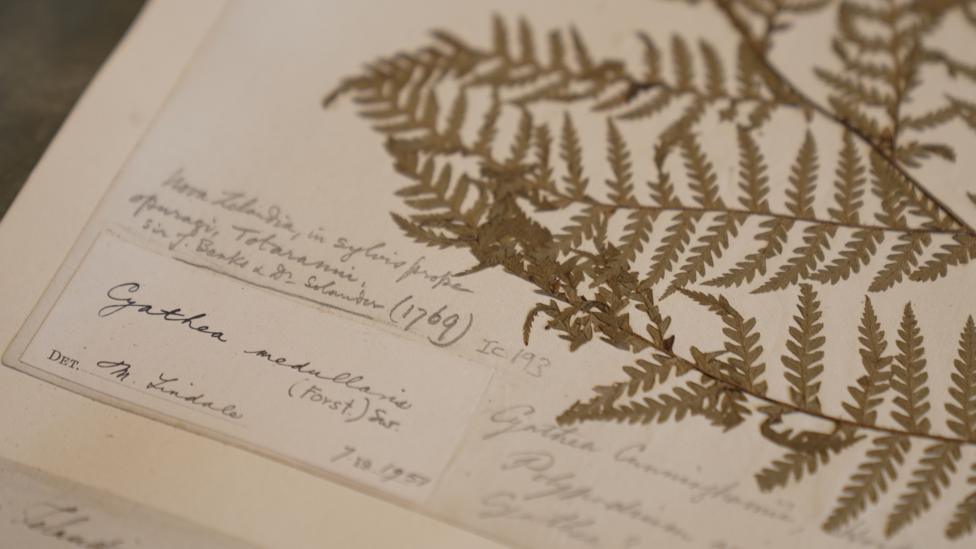 Nova Zelandia, in sylvis prope
opuragi, Totaranui,
Sir J. Banks & Dr. Solander (1769)
IC193
Cyathea medullaris
(Forst.) Sw.
DET. M. Lindale
1957
Cyathea Cunninghamii,
Polypodium
Cyathea